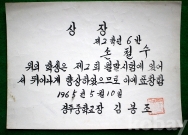 상 장
제2학년 6반
손 천 수
위의 학생은 제2회 월말시험에 있어
서 뛰어나게 향상하였으므로 이에 표창함
1965년 5월 10일
경주중학교장 김 봉 조